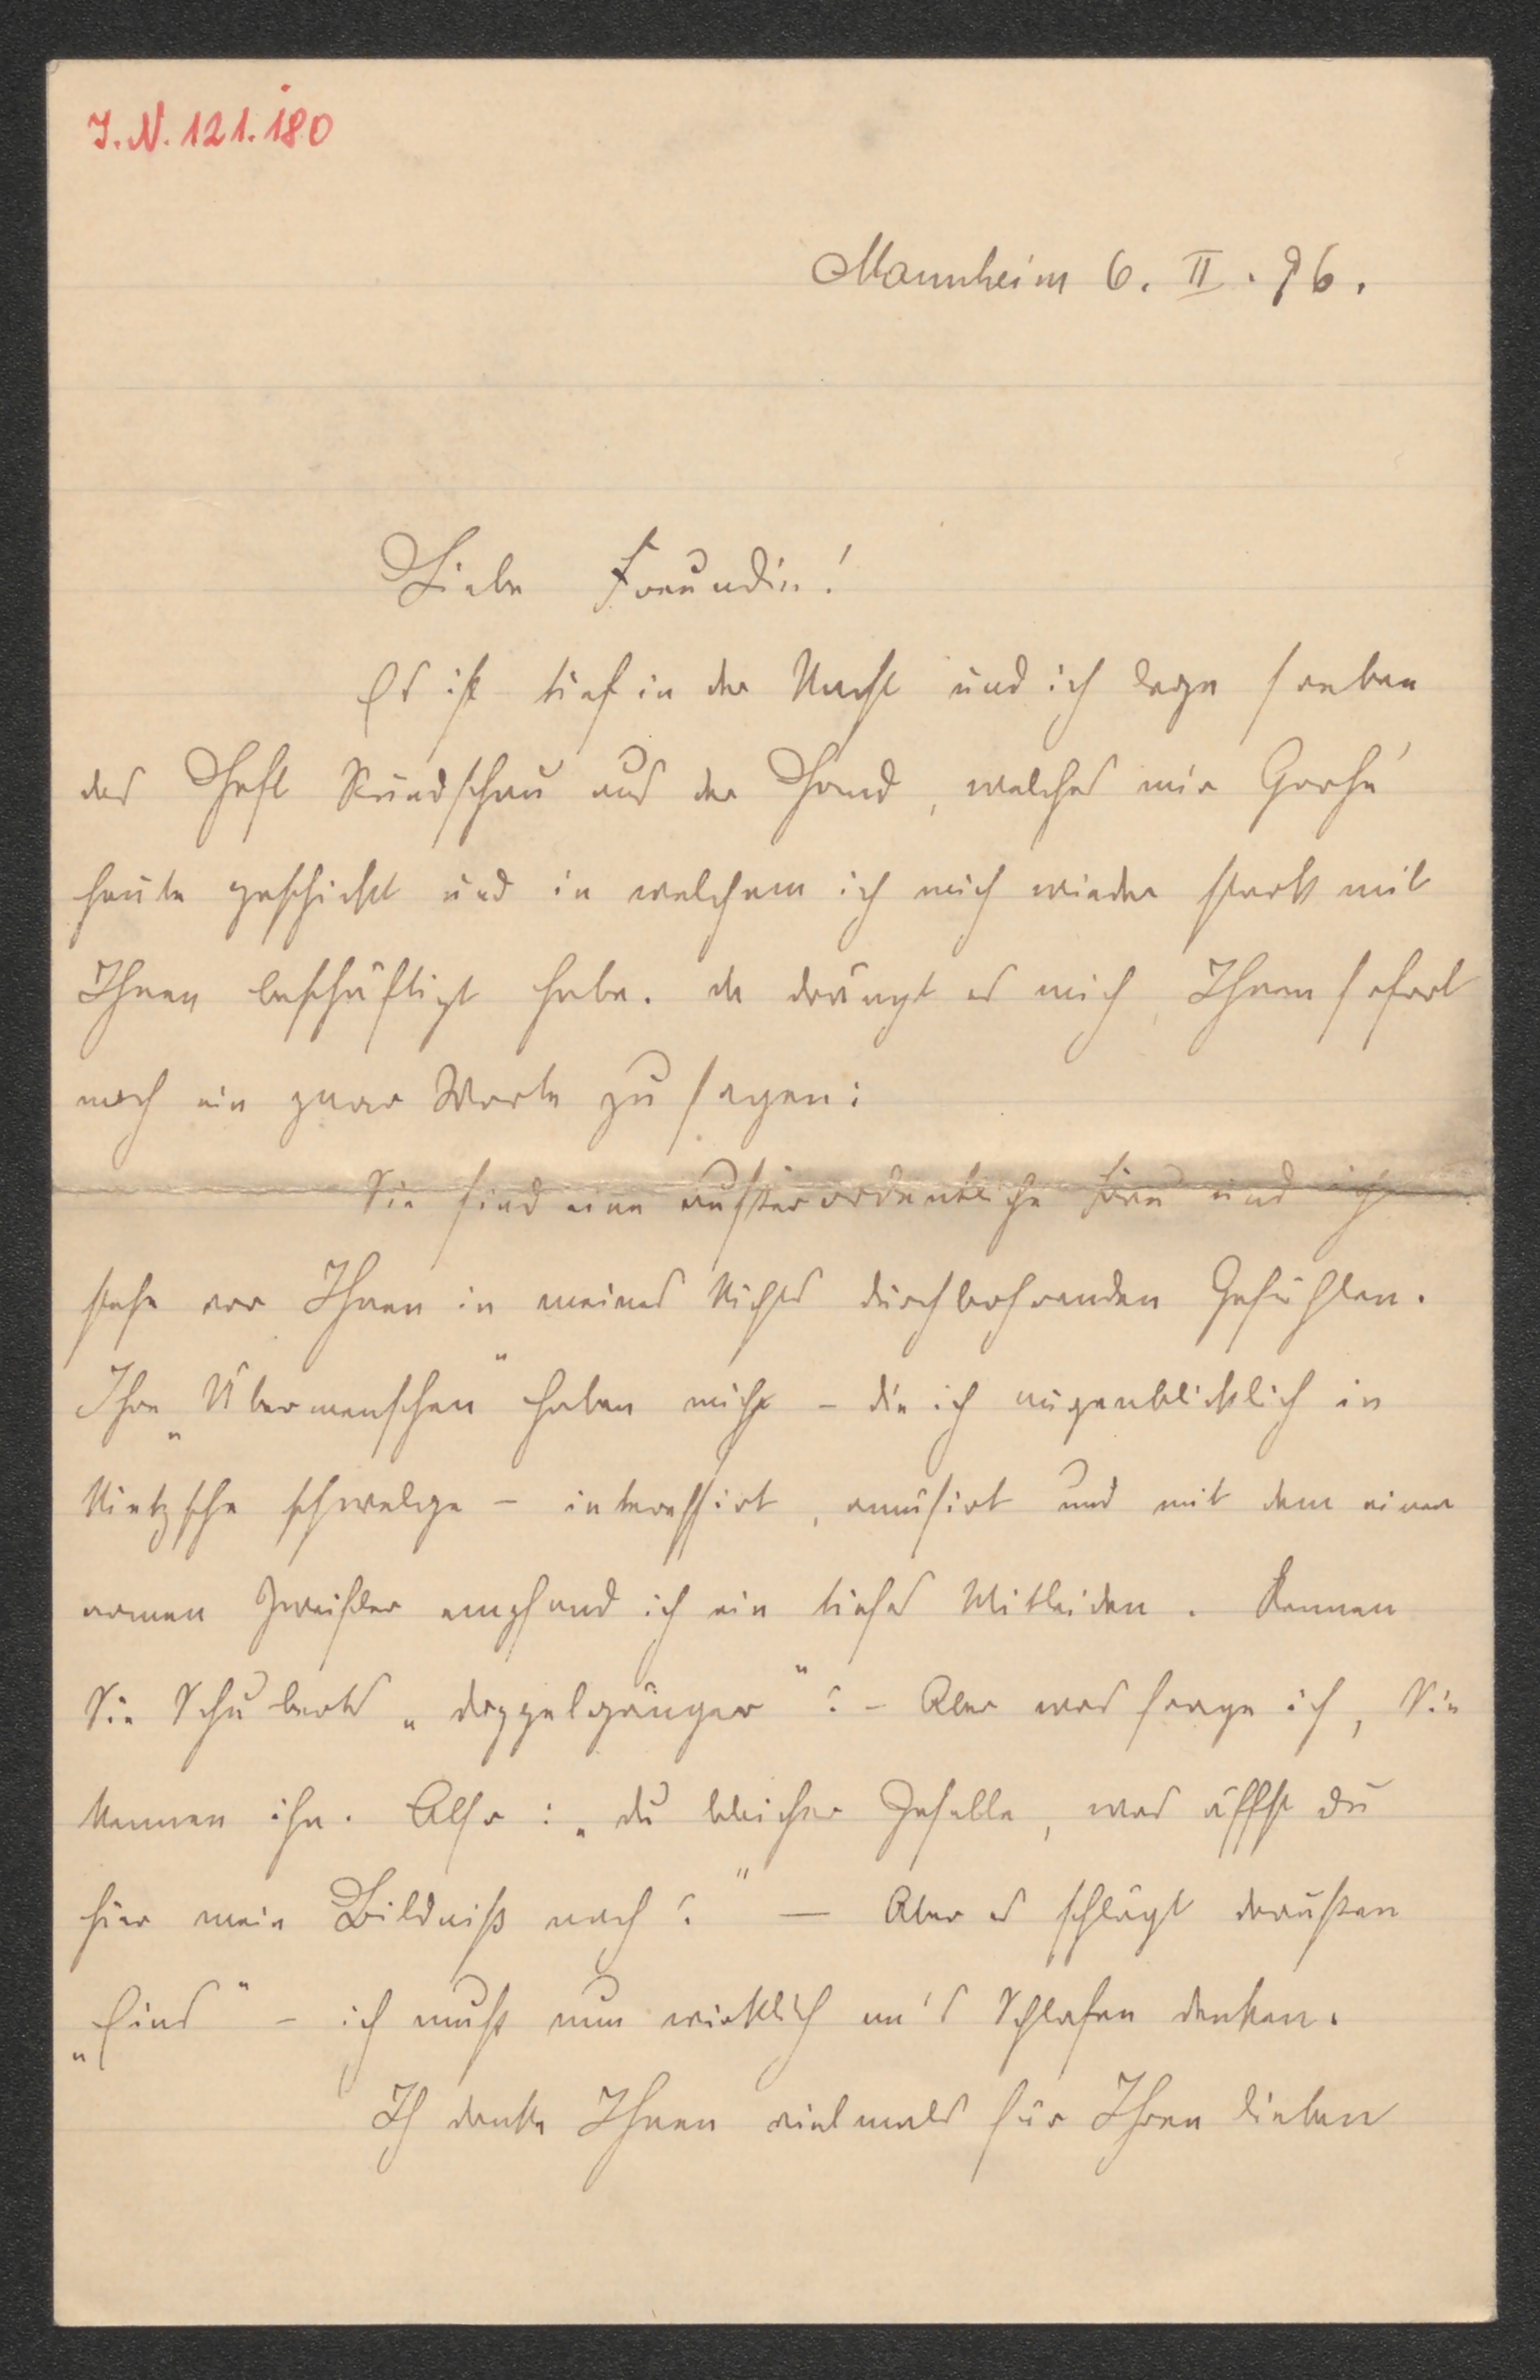 I.N. 121.180
Mannheim 6. II. 96.
Liebe Freundin!
Es ist tief in der Nacht und ich lege soeben
das Heft Rundschau aus der Hand, welches mir
heute geschickt und in welchem ich mich wieder stark mit
Ihnen beschäftigt habe. da drängt es mich, Ihnen sofort
noch ein paar Worte zu sagen:
Sie sind eine außerordentliche Frau und ich
stehe vor Ihnen in meines Nichts durchbohrenden Gefühlen.
Ihre „Übermenschen" haben mich – die ich augenblicklich in
Nietzsche schwelge – interessirt, amüsirt und mit dem einen
armen Zweifler empfand ich ein tiefes Mitleiden. Kennen
Sie Schuberts „doppelgänger"? – Aber was frage ich, Sie
kennen ihn. Also: „du bleicher Geselle, was äffst du
hier mein Bildniß nach?" — Aber es schlägt draußen
„Eins" – ich muß nun wirklich an's Schlafen denken.
Ich danke Ihnen vielmals für Ihren lieben